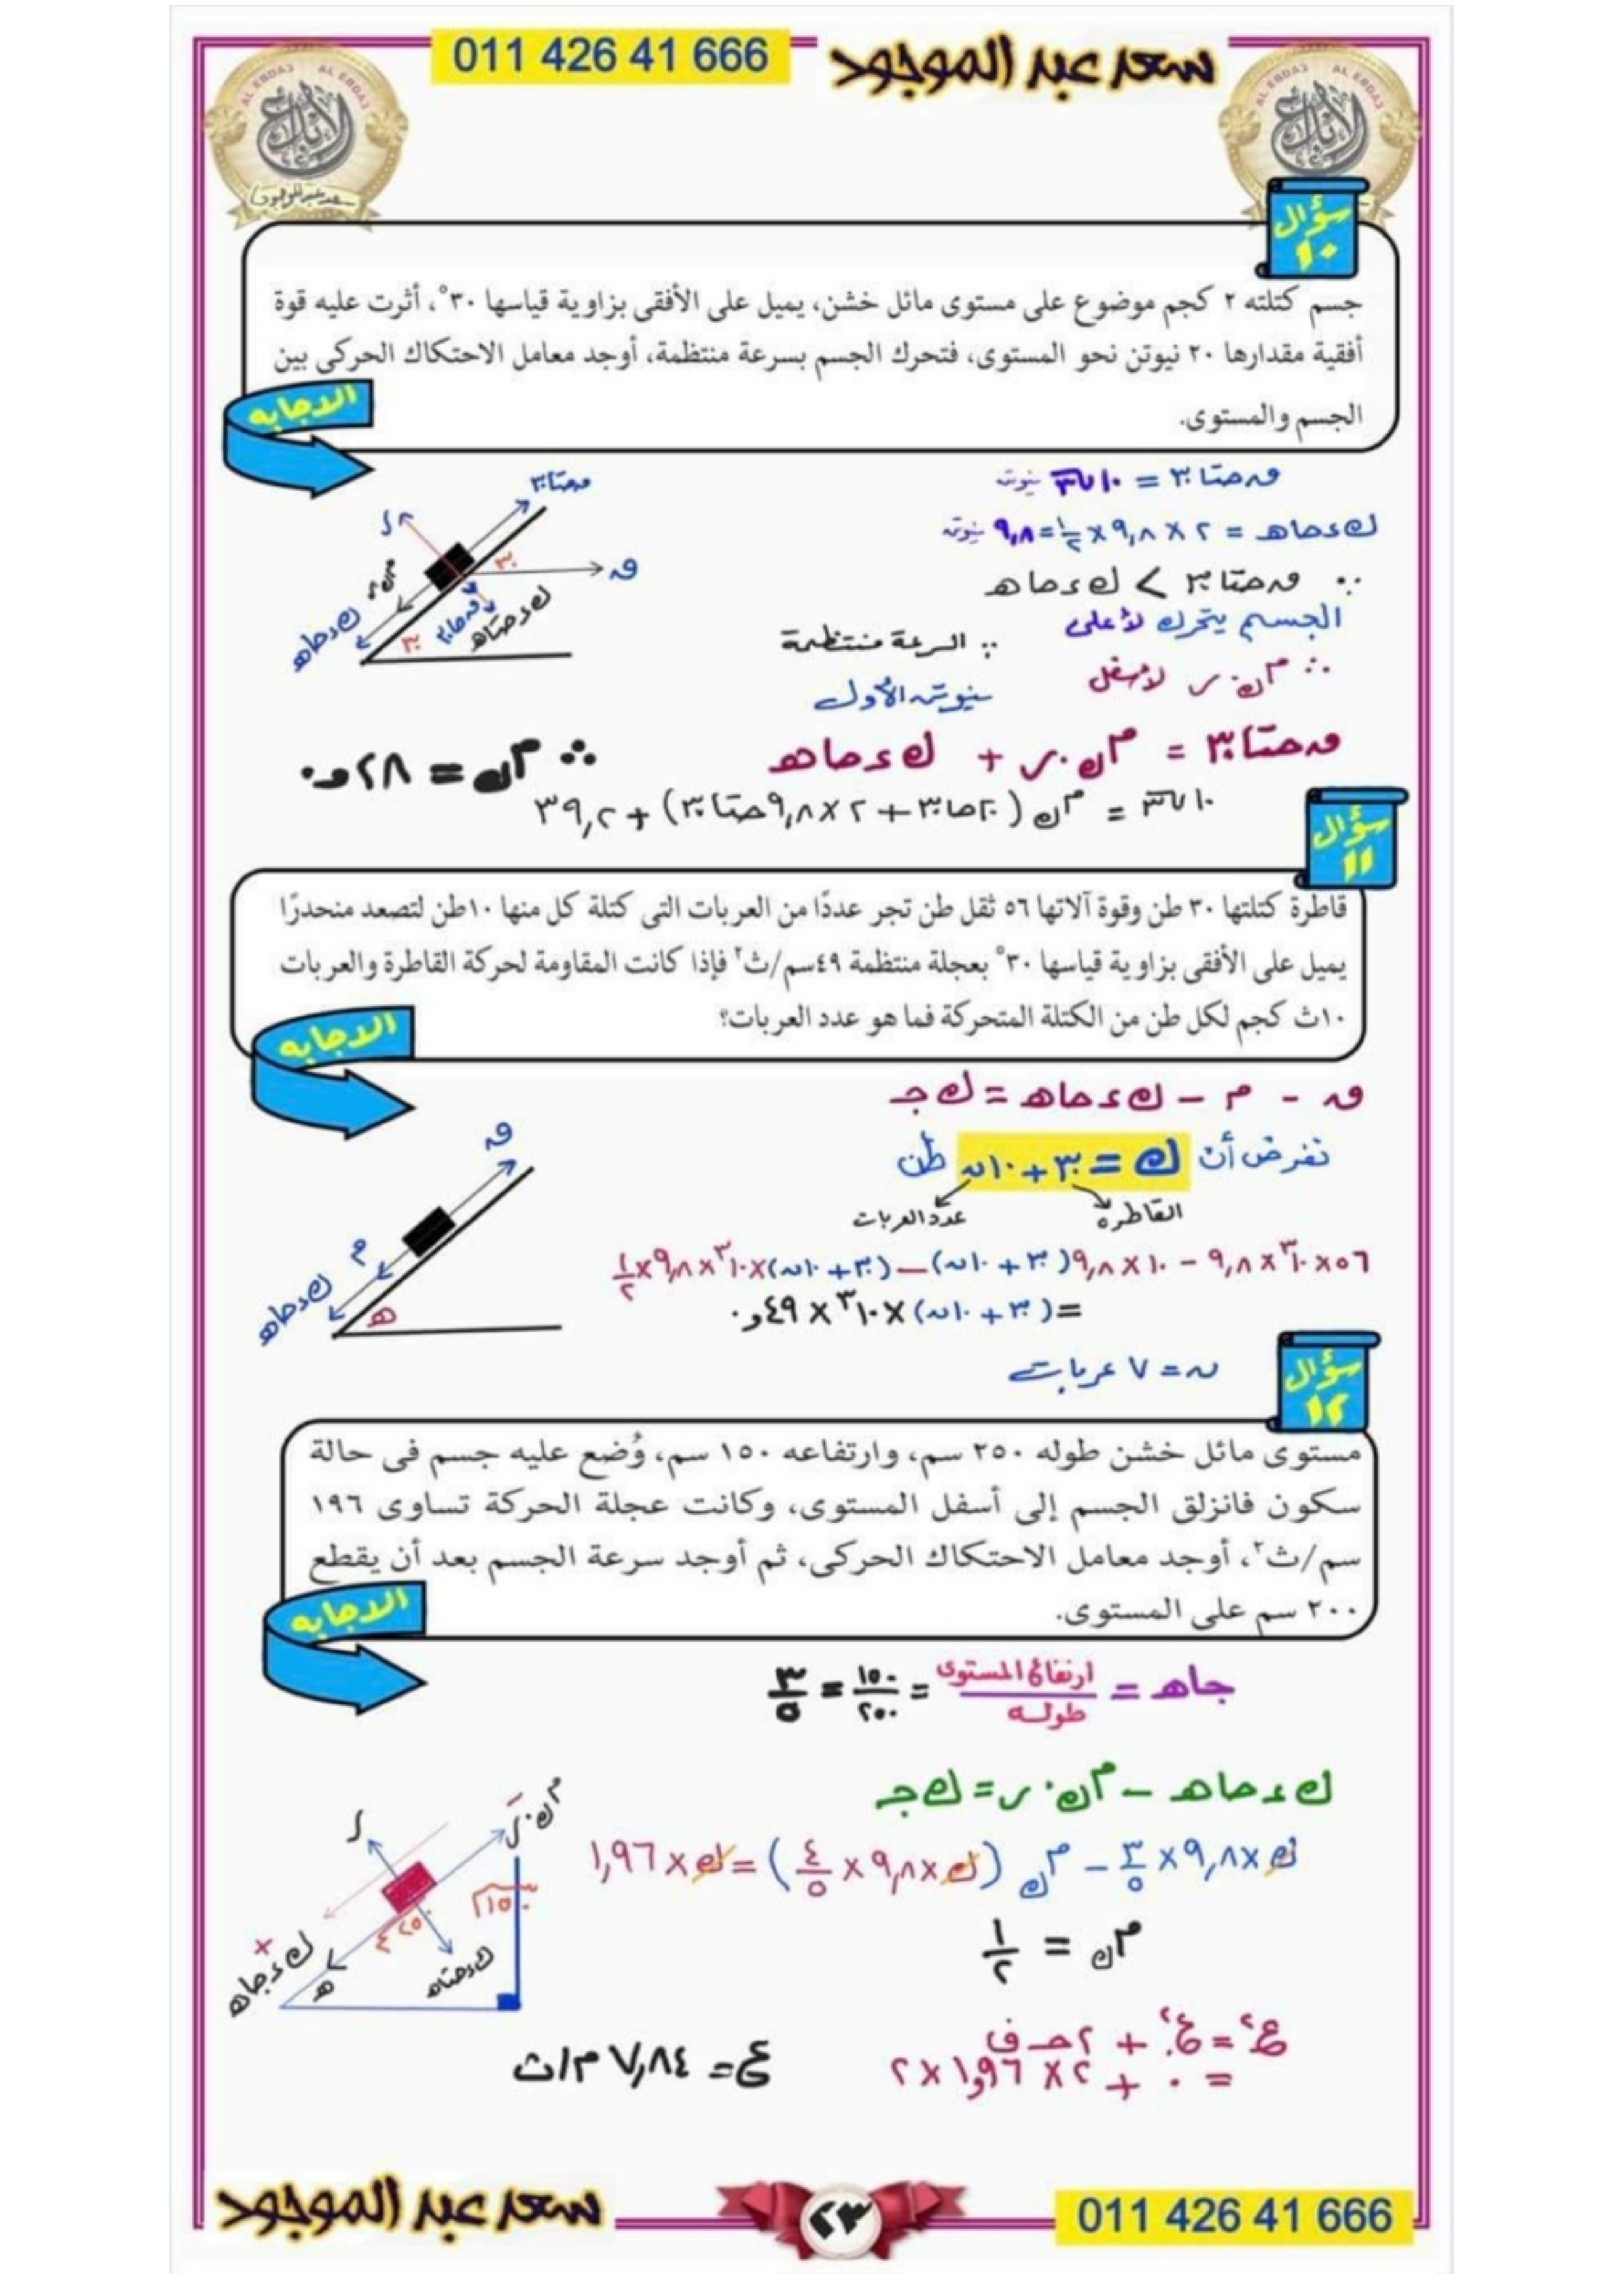 011 426 41 666
سعد عبد الموجود
AL EBDA3 AL EBDA3
الإبداع
سعد عبد الموجود
AL EBDA3 AL EBDA3
الإبداع
سؤال
١٠
جسم كتلته ٢ كجم موضوع على مستوى مائل خشن، يميل على الأفقى بزاوية قياسها ٣٠°، أثرت عليه قوة
أفقية مقدارها ٢٠ نيوتن نحو المستوى، فتحرك الجسم بسرعة منتظمة، أوجد معامل الاحتكاك الحركى بين
الجسم والمستوى.
الاجابه
ق حتا ٣٠ = ١٠√٣ نيوتن
ك ء حا هـ = ٢ × ٩,٨ × ١/٢ = ٩,٨ نيوتن
∵ ق حتا ٣٠ > ك ء حا هـ
الجسم يتحرك لأعلى
∴ م ك . ر لأسفل
∵ السرعة منتظمة
نيوتن الأول
ق حتا ٣٠ = م ك . ر + ك ء حا هـ
١٠√٣ = م ك (٢٠ حا ٣٠ + ٢ × ٩,٨ حتا ٣٠) + ٣٩,٢
∴ م ك = ٢٨و٠
ق حتا ٣٠
ر
٣٠
ق
م ك ر
ك ء حا هـ
٣٠
ق حا ٣٠
ك ء حتا هـ
سؤال
١١
قاطرة كتلتها ٣٠ طن وقوة آلاتها ٥٦ ثقل طن تجر عددًا من العربات التى كتلة كل منها ١٠طن لتصعد منحدرًا
يميل على الأفقى بزاوية قياسها ٣٠° بعجلة منتظمة ٤٩سم/ث٢ فإذا كانت المقاومة لحركة القاطرة والعربات
١٠ث كجم لكل طن من الكتلة المتحركة فما هو عدد العربات؟
الاجابه
ق - م - ك ء حا هـ = ك جـ
نفرض أن ك = ٣٠ + ١٠ ن طن
القاطره
عدد العربات
٥٦ × ١٠^٣ × ٩,٨ - ١٠ × ٩,٨ (٣٠ + ١٠ ن) - (٣٠ + ١٠ ن) × ١٠^٣ × ٩,٨ × ١/٢
= (٣٠ + ١٠ ن) × ١٠^٣ × ٤٩و٠
ن = ٧ عربات
ق
م
ك ء حا هـ
هـ
سؤال
١٢
مستوى مائل خشن طوله ٢٥٠ سم، وارتفاعه ١٥٠ سم، وُضع عليه جسم فى حالة
سكون فانزلق الجسم إلى أسفل المستوى، وكانت عجلة الحركة تساوى ١٩٦
سم/ث٢، أوجد معامل الاحتكاك الحركى، ثم أوجد سرعة الجسم بعد أن يقطع
٢٠٠ سم على المستوى.
الاجابه
جا هـ = ارتفاع المستوى / طوله = ١٥٠/٢٥٠ = ٣/٥
ك ء حا هـ - م ك . ر = ك جـ
ك × ٩,٨ × ٣/٥ - م ك (ك × ٩,٨ × ٤/٥) = ك × ١,٩٦
م ك = ١/٢
ع٢ = ع.٢ + ٢ حـ ف
= ٠ + ٢ × ١,٩٦ × ٢
ع = ٧,٨٤ م/ث
م ك . ر
ر
١٥٠
٢٥٠
ك ء جا هـ
هـ
ك ء حتا هـ
سعد عبد الموجود
٢٣
011 426 41 666